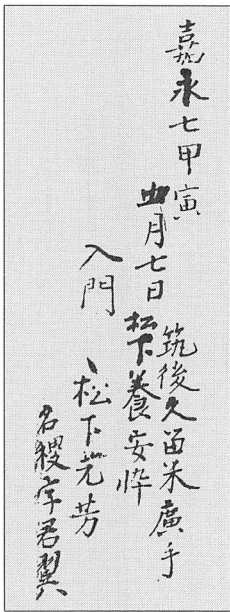 嘉永七甲寅
四月七日
入門
筑後久留米廣手
松下養安悴
松下元芳
名稷字君翼